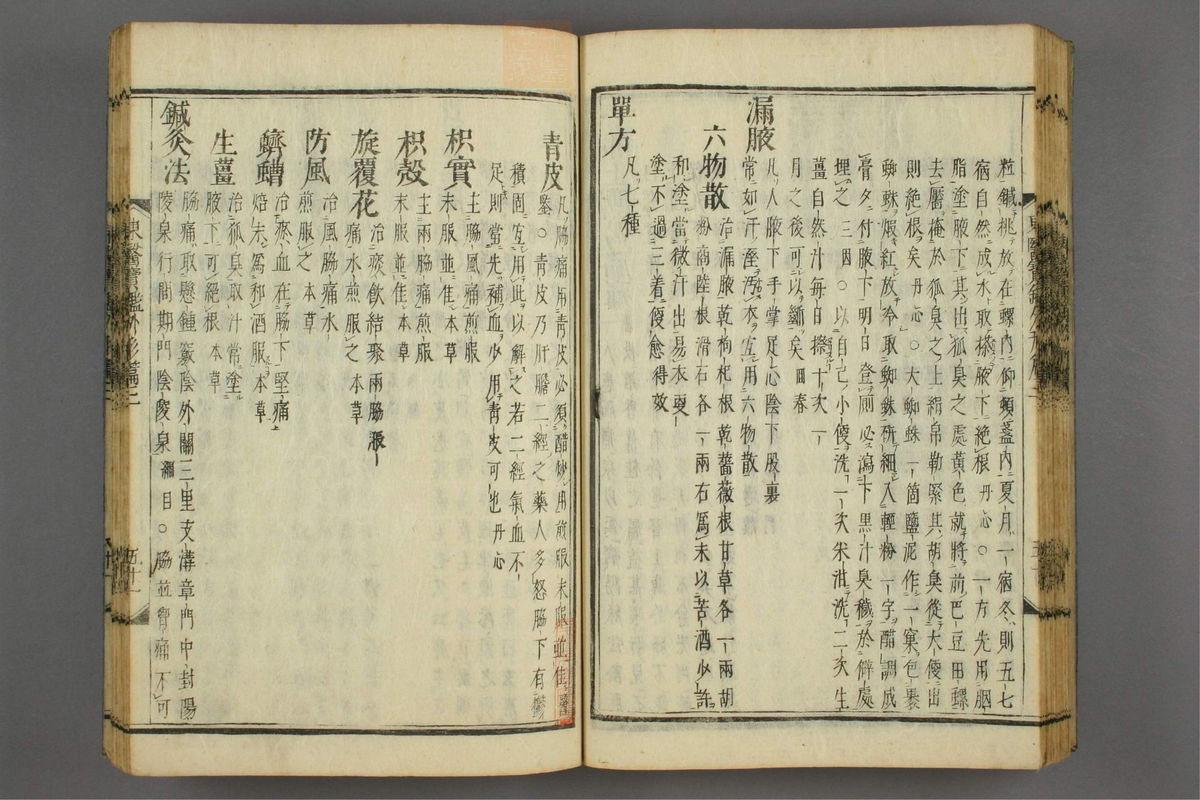 粒鍼挑放在螺內仰頓盞內夏月一宿冬則五七
宿自然成水取搽腋下絶根丹心○一方先用胭
脂塗腋下其出狐臭之處黃色就將前巴豆田螺
去靨掩於狐臭之上絹帛勒緊其胡臭從大便出
則絶根矣丹心○大蜘蛛一箇鹽泥作一窠包裹
蜘蛛煆紅放冷取蜘蛛硏細入輕粉一字醋調成
膏夕付腋下明日登厠必瀉下黑汁臭穢於僻處
埋之三因○以自己小便洗一次米泔洗二次生
薑自然汁每日搽十次一
月之後可以斷矣回春
漏腋 凡人腋下手掌足心陰下股裏
常如汗溼汚衣宜用六物散
六物散 治漏腋乾枸杞根乾薔薇根甘草各一兩胡
粉商陸根滑石各一兩右爲末以苦酒少許
和塗當微汗出易衣更
塗不過三着便愈得效
單方 凡七種
青皮 凡脇痛用青皮必須醋炒用煎服末服並佳醫
鑒○青皮乃肝膽二經之藥人多怒脇下有鬱
積固宜用此以解之若二經氣血不
足則當先補血少用青皮可也丹心
枳實 主脇風脇痛煎服
末服並佳本草
枳殼 主兩脇痛煎服
末服並佳本草
旋覆花 治痰飮結聚兩脇脹
痛水煎服之本草
防風 治風脇痛水
煎服之本草
蠐螬 治瘀血在脇下堅痛
焙末爲和酒服本草
生薑 治狐臭取汁常塗
腋下可絶根本草
鍼灸法 脇痛取懸鍾竅陰外關三里支溝章門中封陽
陵泉行間期門陰陵泉綱目○脇並脅痛不可
東醫寶鑑外形篇二
五十一